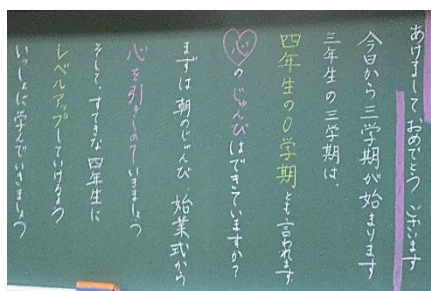 あけまして おめでとう ございます
今日から三学期が始まります
三年生の三学期は、
四年生の0学期とも言われます
心の じゅんびはできていますか?
まずは朝のじゅんび 始業式から
心を引きしめていきましょう
そして、すてきな四年生に
レベルアップしていけるよう
いっしょに学んでいきましょう